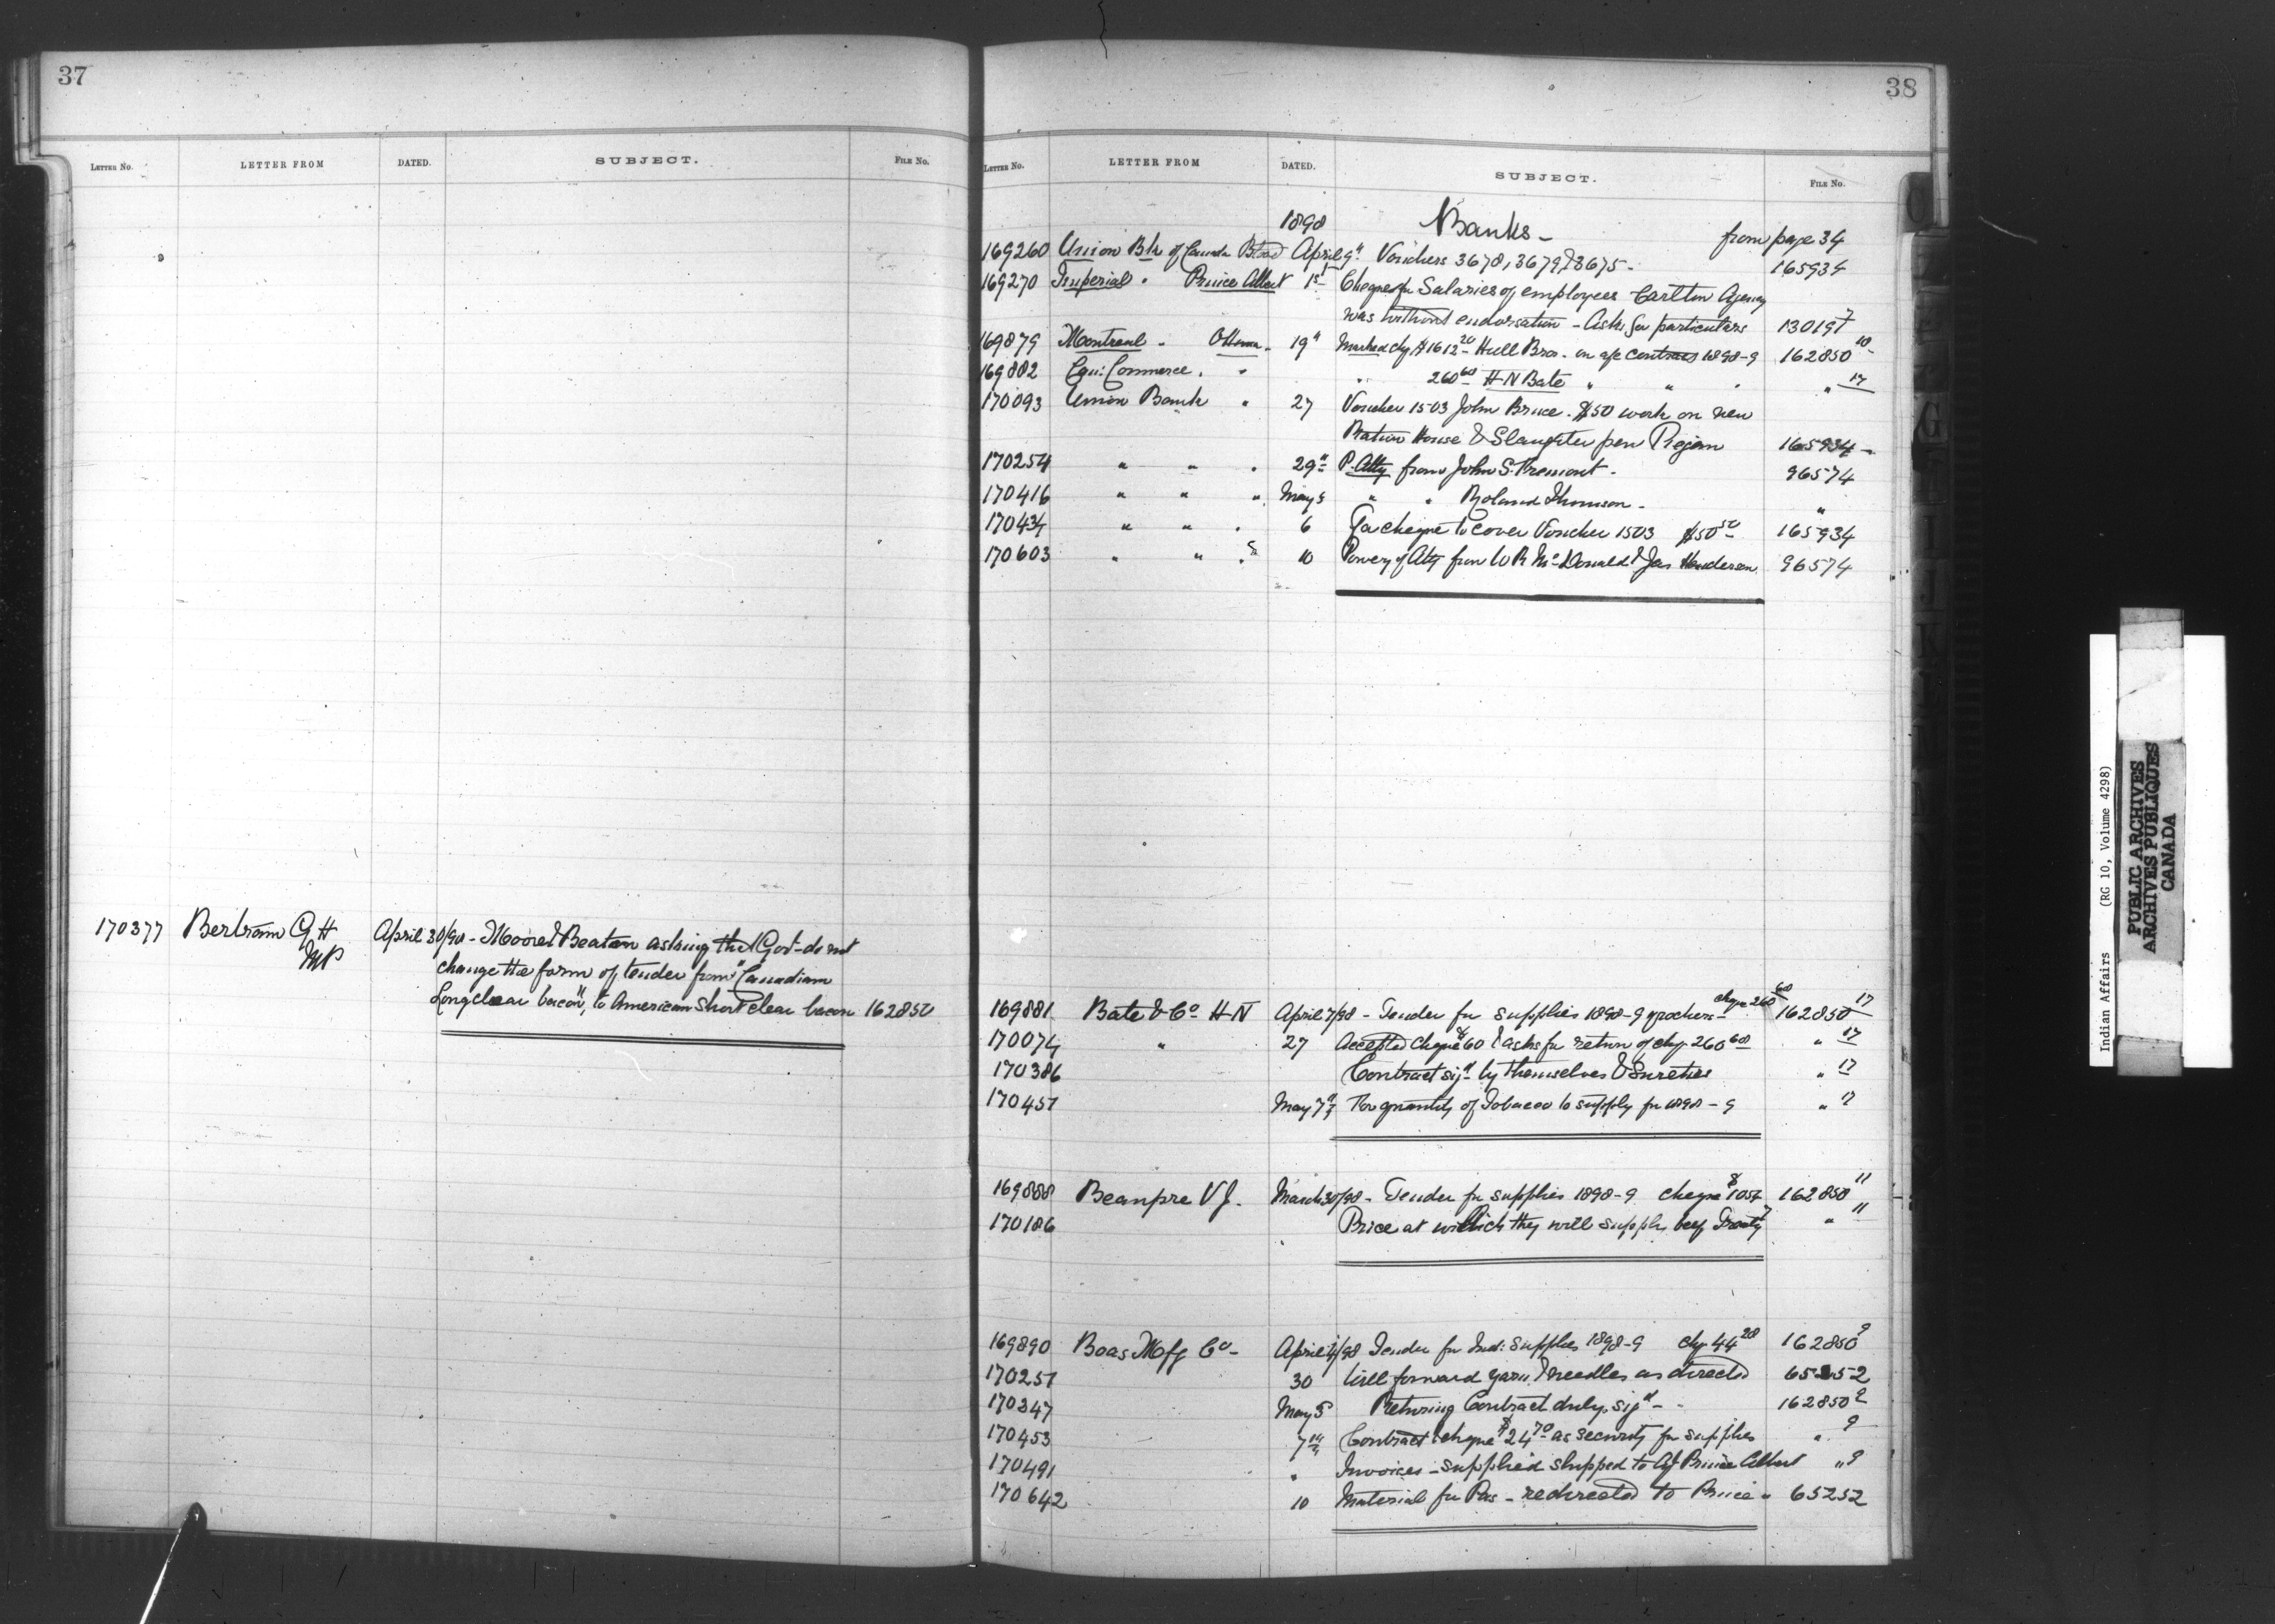 37
LETTER No. LETTER FROM DATED. SUBJECT. FILE No.
170377 Bertram G H April 30/98 - Moore & Beaton asking that Govt do not
MP change the form of tender from "Canadian
Long clear bacon", to American Short clear bacon 162850
38
LETTER No. LETTER FROM DATED. SUBJECT. FILE No.
1898 Banks - from page 34
169260 Union Bk of Canada April 9" Vouchers 3678, 3679 & 3675 - 165934
169270 Imperial " Prince Albert 1st Cheque for Salaries of employees Carlton Agency
was without endorsation - Asks for particulars 130191 7
169879 Montreal " Ottawa - 19" Marked chq $1612 20 Hull Bros. on a/c contract 1898-9 162850 10
169882 Can: Commerce " " " 260 60 H N Bate " " " " 17
170093 Union Bank " 27 Voucher 1503 John Bruce. $50 work on new
Ration House & Slaughter pen 165934 -
170254 " " " 29" P. Atty from John S. Fremont - 96574
170416 " " " May 5 " " Roland Thomson - "
170434 " " " 6 For cheque to cover Voucher 1503 $50 165934
170603 " " " 10 Power of Atty from W R McDonald & Jas Henderson 96574
169881 Bate & Co H N April 7/98 - Tender for supplies 1898-9 groceries - cheque 260 60 162850 17
170074 " 27 Accepted cheque $60 & asks for return of chq 260 60 " 17
170386 Contract sigd by themselves & Sureties " 17
170451 May 7" For quantity of Tobacco to supply for 1898-9 " 17
169888 Beaupre V J. March 30/98 - Tender for supplies 1898-9 cheque $1054 162850 11
170186 Price at which they will supply beef Treaty 7 " 11
169890 Boas Mfg Co - April 4/98 Tender for Ind: Supplies 1898-9 chq 44 20 162850 9
170251 30 Will forward yarn & needles as directed 65252
170347 May 5 Returning Contract duly sigd - 162850 9
170453 7th Contract & cheque $24 70 as security for supplies " 9
170491 " Invoices - supplied shipped to Prince Albert " 9
170642 10 Material for Pas - redirected to Prince " 65252
Indian Affairs (RG 10, Volume 4298)
PUBLIC ARCHIVES
ARCHIVES PUBLIQUES
CANADA